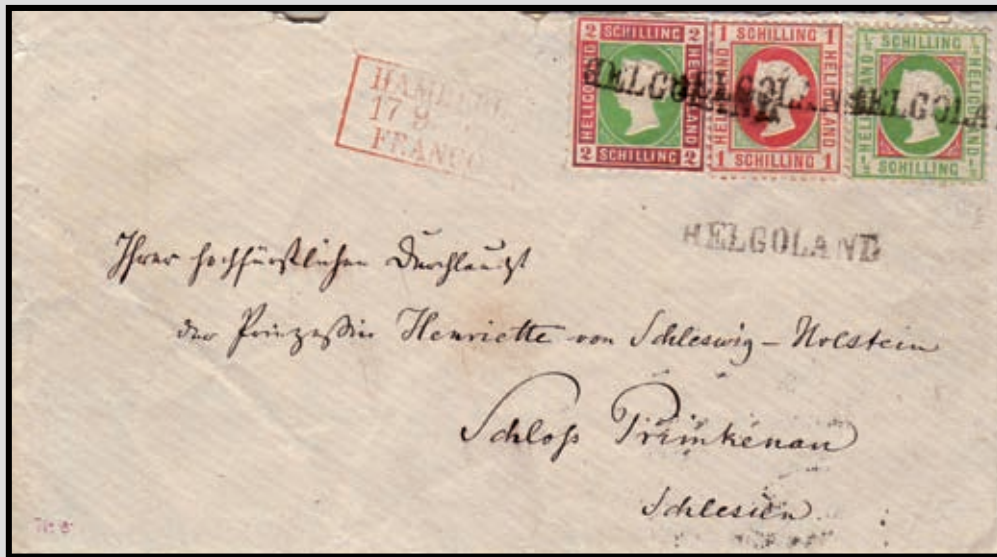 2 SCHILLING 2
HELGOLAND
HELGOLAND
2 SCHILLING 2
1 SCHILLING 1
HELGOLAND
HELGOLAND
1 SCHILLING 1
½ SCHILLING ½
HELIGOLAND
HELIGOLAND
½ SCHILLING ½
HELGOLAND
HELGOLAND
HELGOLA
17 9
FRANCO
HELGOLAND
Ihrer hochfürstlichen Durchlaucht
der Prinzessin Henriette von Schleswig-Holstein
Schloß Primkenau
Schlesien.